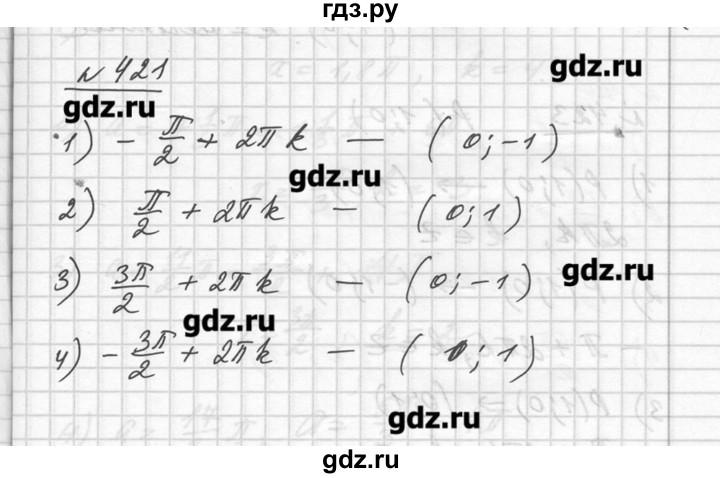 гдз.ру
№ 421
gdz.ru
gdz.ru
1) - π/2 + 2πk — (0; -1)
gdz.ru
2) π/2 + 2πk — (0; 1)
3) 3π/2 + 2πk — (0; -1)
gdz.ru
gdz.ru
4) - 3π/2 + 2πk — (0; 1)
gdz.ru
gdz.ru